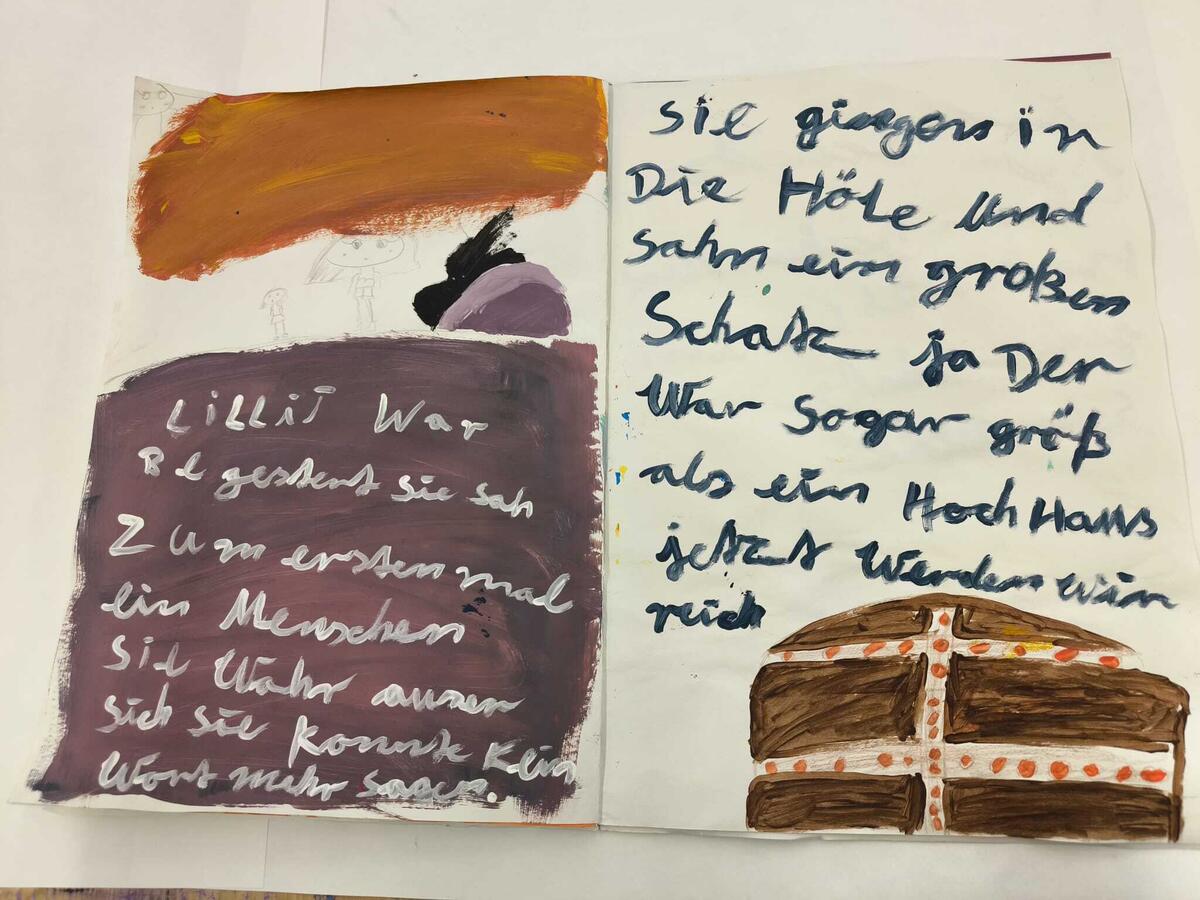 LiLLi War
Begestert sie sah
Zum ersten mal
ein Menschen
Sie Wahr auser
sich sie konnte kein
Wort mehr sagen.
sie gingen in
Die Höle und
sahn ein großen
Schatz ja Der
War sogar größ
als ein HochHaus
jetzt Werden wir
reich